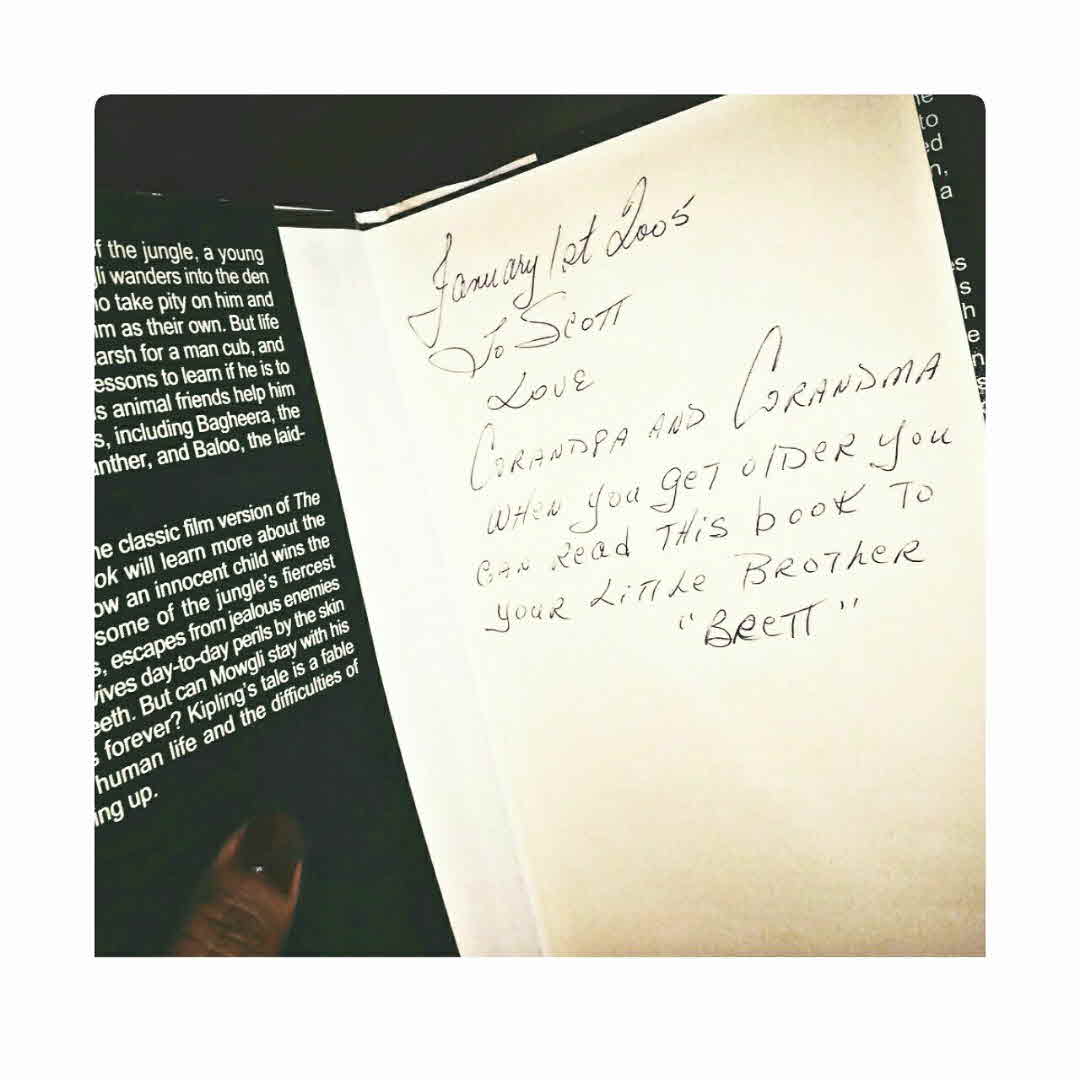 f the jungle, a young
gli wanders into the den
take pity on him and
as their own. But life
for a man cub, and
to learn if he is to
s animal friends help him
s, including Bagheera, the
and Baloo, the laid-
classic film version of The
will learn more about the
an innocent child wins the
some of the jungle's fiercest
s, escapes from jealous enemies
day-to-day perils by the skin
But can Mowgli stay with his
forever? Kipling's tale is a fable
human life and the difficulties of
ing up.
January 1st 2005
To Scott
Love
Grandpa and Grandma
When you get older you
can read This book To
your Little Brother
"Brett"
to
ed
n,
a